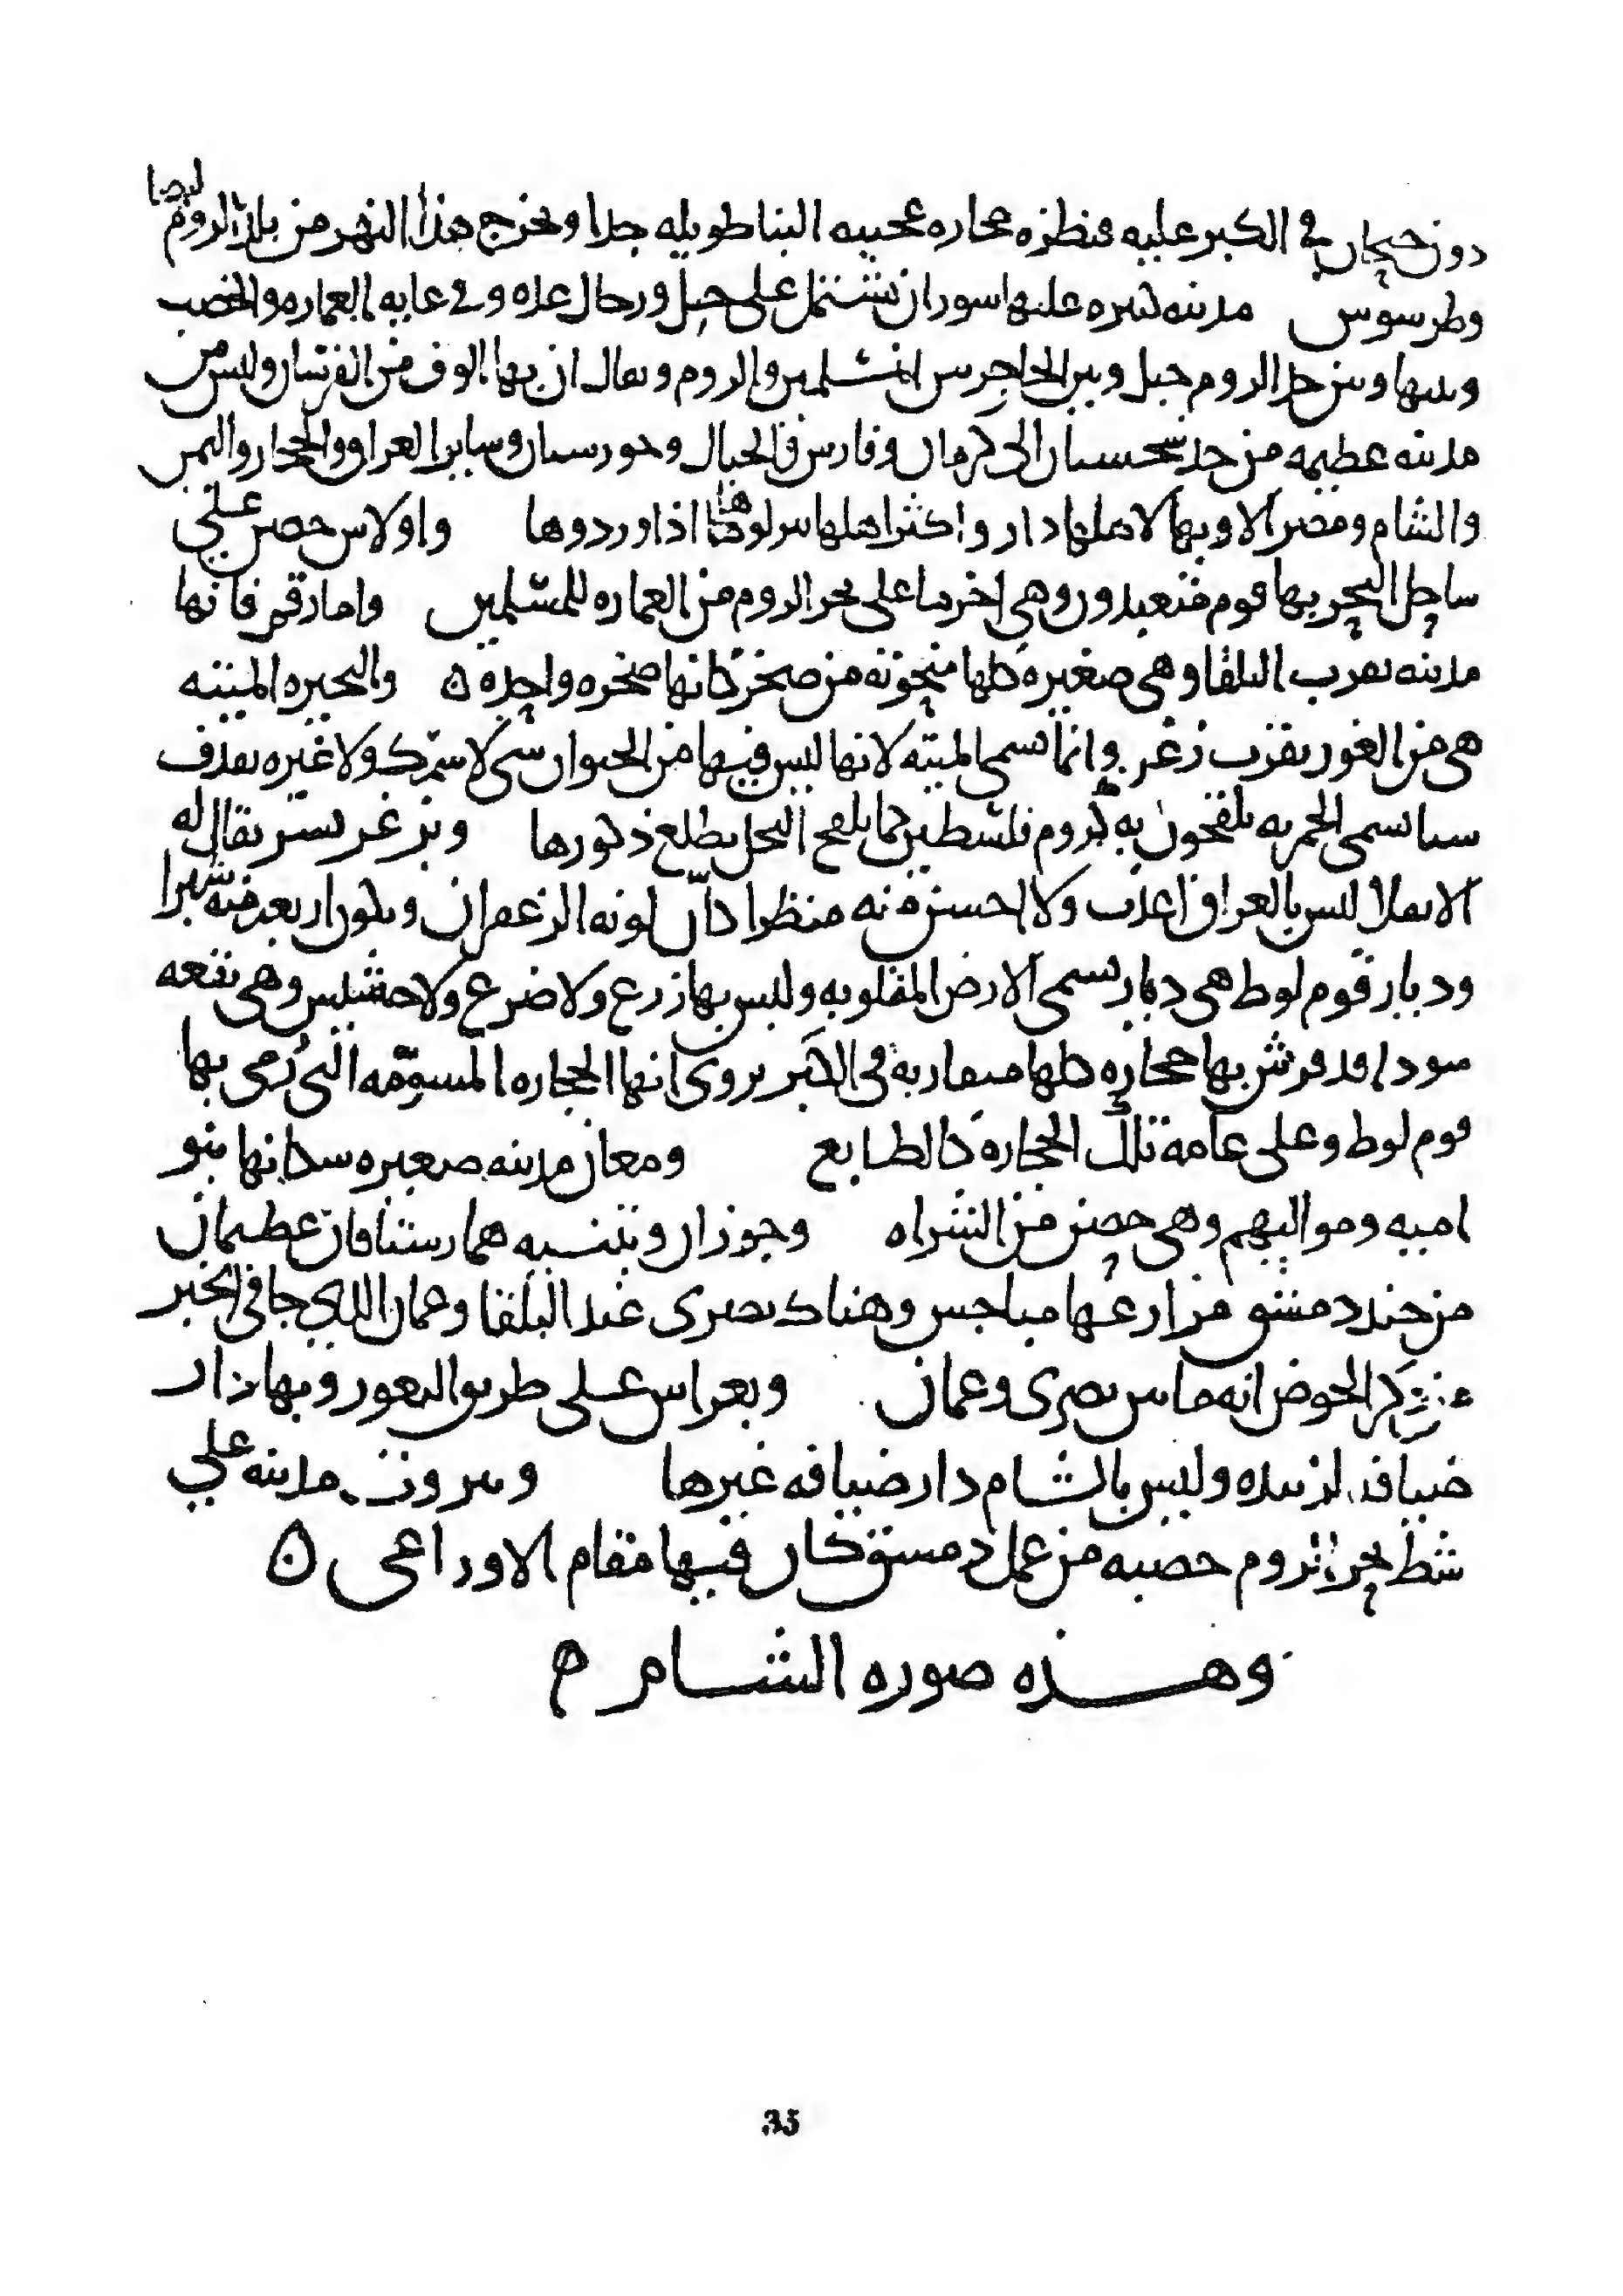 دون جيحان في الكبر عليه قنطرة حجاره عجيبه البنا طويله جدا ويخرج هذا النهر من بلاد الروم ايضا
وطرسوس مدينه كبيره عليها سوران تشتمل على خيل ورجال وعده وفي غايه العماره والخصب
وبينها وبين حد الروم جبل وهو الحاجز بين المسلمين والروم ويقال ان بها الوف من الفرسان وليس من
مدينه عظيمه من حد سجستان الى كرمان وفارس والجبال وخورستان وساير العراق والحجاز واليمن
والشام ومصر الا وبها لاهلها دار واكثر اهلها ينزلونها اذا وردوها واولاس حصن على
ساحل البحر بها قوم متعبدون وهي اخر ما على بحر الروم من العماره للمسلمين واما رقيم فانها
مدينه بقرب البلقا وهي صغيره كلها منحوته من صخر كانها صخره واحده ن والبحيره الميته
هي من الغور بقرب زغر وانما تسمى الميته لانها ليس فيها من الحيوان شي لا سمك ولا غيره يقذف
شيا يسمى الحمريه يلقحون به كروم فلسطين كما يلقح النخل بطلع ذكورها وبزغر بسر يقال له
الانقلا ليس بالعراق اعذب ولا احسن منه منظرا كان لونه الزعفران ويكون اربعه منه شبرا
وديار قوم لوط هي ديار تسمى الارض المقلوبه وليس بها زرع ولا ضرع ولا حشيش وهي بقعه
سودا قد فرش بها حجاره كلها متقاربه في الكبر يروى انها الحجاره المسومه التي رمى بها
قوم لوط وعلى عامه تلك الحجاره كالطابع ومعان مدينه صغيره سكانها بنو
اميه ومواليهم وهي حصن من الشراه وحوران وبثنيه هما رستاقان عظيمان
من جند دمشق مزارعها مباخس وهناك بصرى عند البلقا وعمان الذي جا في الخبر
في ذكر الحوض انه ما بين بصرى وعمان وبغراس على طريق الثغور وبها دار
ضيافه لزبيده وليس بالشام دار ضيافه غيرها وبيروت مدينه على
شط بحر الروم خصبه من عمل دمشق كان فيها مقام الاوزاعي ن
وهذه صوره الشام م
35